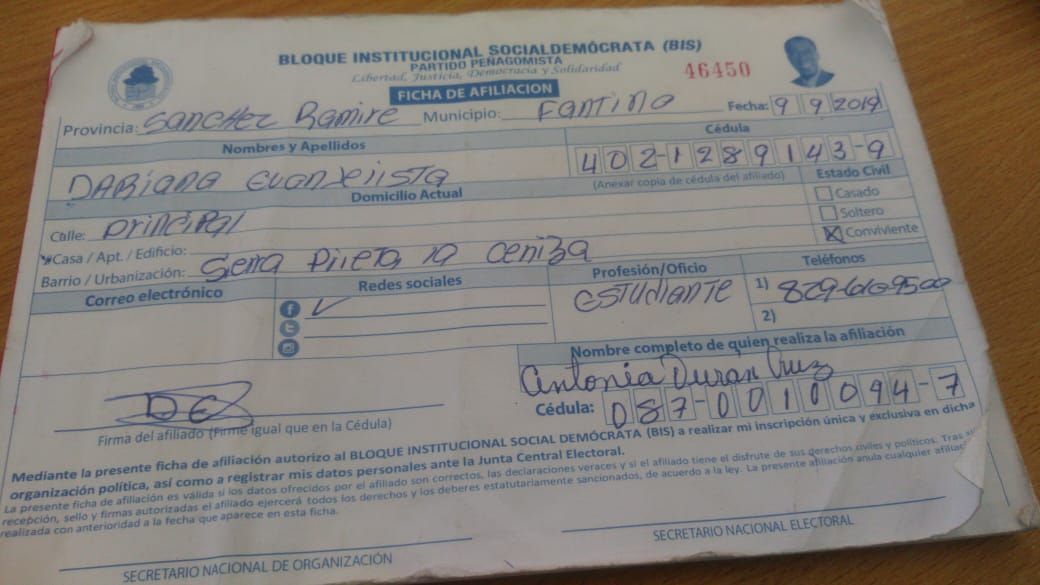 BLOQUE INSTITUCIONAL SOCIALDEMÓCRATA (BIS)
PARTIDO PEÑAGOMISTA
Libertad, Justicia, Democracia y Solidaridad
46450
FICHA DE AFILIACION
Provincia: Sanchez Ramire Municipio: Fantino Fecha: 9 9 2019
Nombres y Apellidos Cédula
DARiana evanjelista 402-1289143-9
(Anexar copia de cédula del afiliado)
Domicilio Actual Estado Civil
Calle: principal Casado
Casa / Apt. / Edificio: Soltero
X Conviviente
Barrio / Urbanización: Sierra Prieta la ceniza
Correo electrónico Redes sociales Profesión/Oficio Teléfonos
estudiante 1) 829-610-9500
2)
Nombre completo de quien realiza la afiliación
Antonia Durán Cruz
DE Cédula: 087-0010094-7
Firma del afiliado (Firme igual que en la Cédula)
Mediante la presente ficha de afiliación autorizo al BLOQUE INSTITUCIONAL SOCIAL DEMÓCRATA (BIS) a realizar mi inscripción única y exclusiva en dicha
organización política, así como a registrar mis datos personales ante la Junta Central Electoral.
La presente ficha de afiliación es válida si los datos ofrecidos por el afiliado son correctos, las declaraciones veraces y si el afiliado tiene el disfrute de sus derechos civiles y políticos. Tras su
recepción, sello y firmas autorizadas el afiliado ejercerá todos los derechos y los deberes estatutariamente sancionados, de acuerdo a la ley. La presente afiliación anula cualquier
realizada con anterioridad a la fecha que aparece en esta ficha.
SECRETARIO NACIONAL DE ORGANIZACIÓN SECRETARIO NACIONAL ELECTORAL